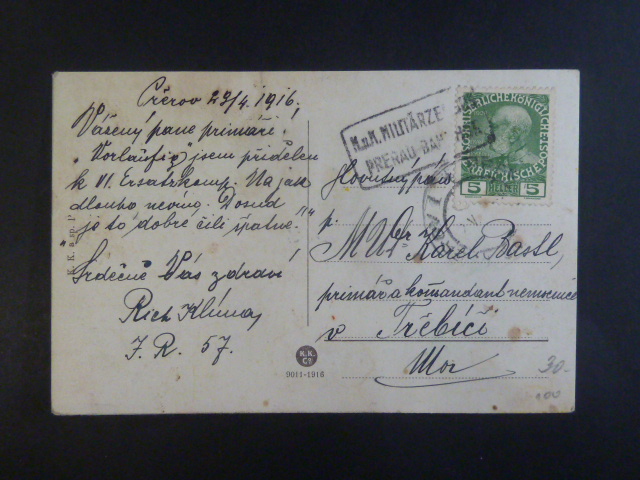 Přerov 29/4 1916.
Vážený pane primáři!
"Vorläufig" jsem přidělen
k VI. Ersatzkomp. Na jak
dlouho nevím. Dosud
je to "dobré čili špatné."
Srdečně Vás zdraví
Rich Klíma
I. R. 57.
K. u. K. MILITÄRZE
PRERAU-BA
KAISERLICHE KÖNIGLICHE ÖSTERREICHISCHE
5 HELLER 5
p.
MUDr Karel Bastl,
primář a komandant nemocnice
v Třebíči
Mor
K.K.
C?
9011-1916
30.-